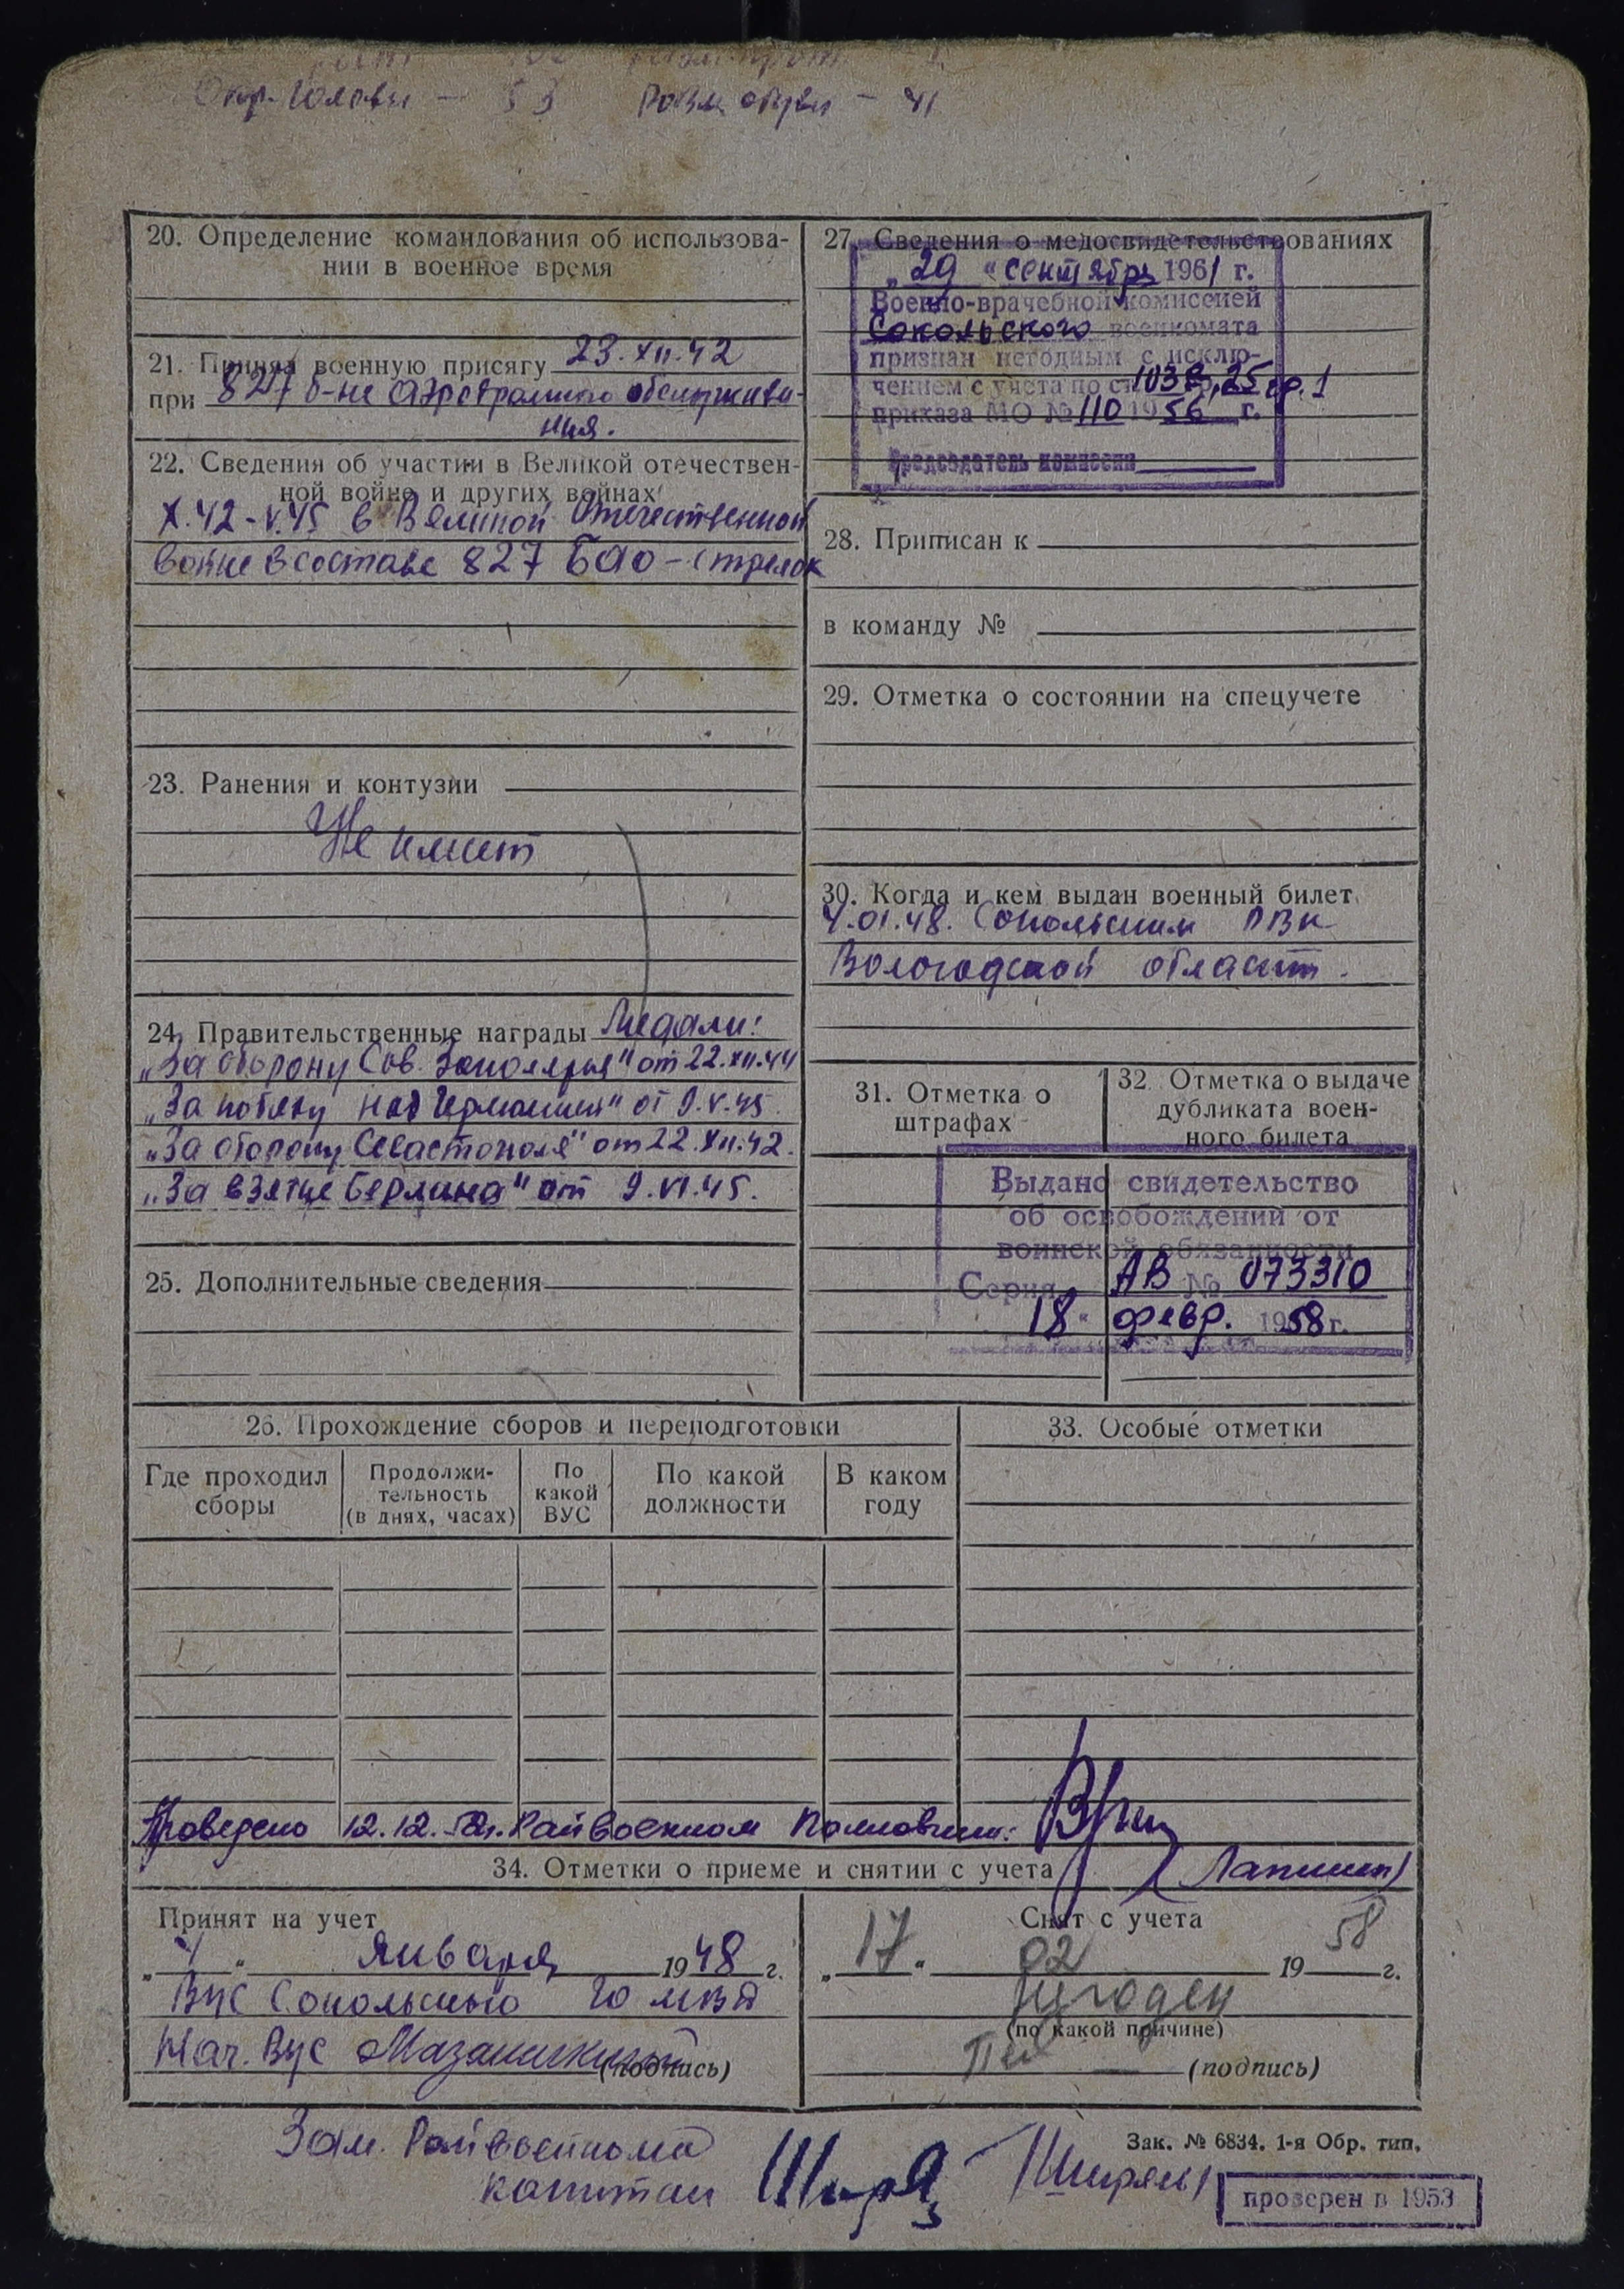 Окр. головы - 53 Разм. обуви - 41
20. Определение командования об использова-
нии в военное время
21. Принял военную присягу 23.XII.42
при 827 б-не аэродромного обслужива-
ния.
22. Сведения об участии в Великой отечествен-
ной войне и других войнах
X.42-V.45 в Великой Отечественной
войне в составе 827 БАО - стрелок
23. Ранения и контузии
Не имеет
24. Правительственные награды Медали:
„За оборону Сов. Заполярья" от 22.XII.44
„За победу над Германией" от 9.V.45.
„За оборону Севастополя" от 22.XII.42.
„За взятие Берлина" от 9.VI.45.
25. Дополнительные сведения
27. Сведения о медосвидетельствованиях
„29" сентября 1961 г.
Военно-врачебной комиссией
Сокольского военкомата
признан негодным с исклю-
чением с учета по ст. 103 25 гр. 1
приказа МО № 110 1956 г.
Председатель комиссии
28. Приписан к
в команду №
29. Отметка о состоянии на спецучете
30. Когда и кем выдан военный билет
4.01.48. Сокольским РВК
Вологодской области.
31. Отметка о
штрафах
32. Отметка о выдаче
дубликата воен-
ного билета
Выдано свидетельство
об освобождении от
воинской обязанности
Серия АВ № 073310
18" февр. 1958 г.
26. Прохождение сборов и переподготовки
Где проходил
сборы
Продолжи-
тельность
(в днях, часах)
По
какой
ВУС
По какой
должности
В каком
году
33. Особые отметки
Проверено 12.12. Райвоенком Полковник:
(Лапшин)
34. Отметки о приеме и снятии с учета
Принят на учет
„4" января 1948 г.
ВУС Сокольского ГО МВД
Нач. ВУС
(подпись)
Снят с учета
„17" 02 1958 г.
негоден
(по какой причине)
(подпись)
Зам. Райвоенкома
капитан
Зак. № 6834. 1-я Обр. тип.
проверен в 1953